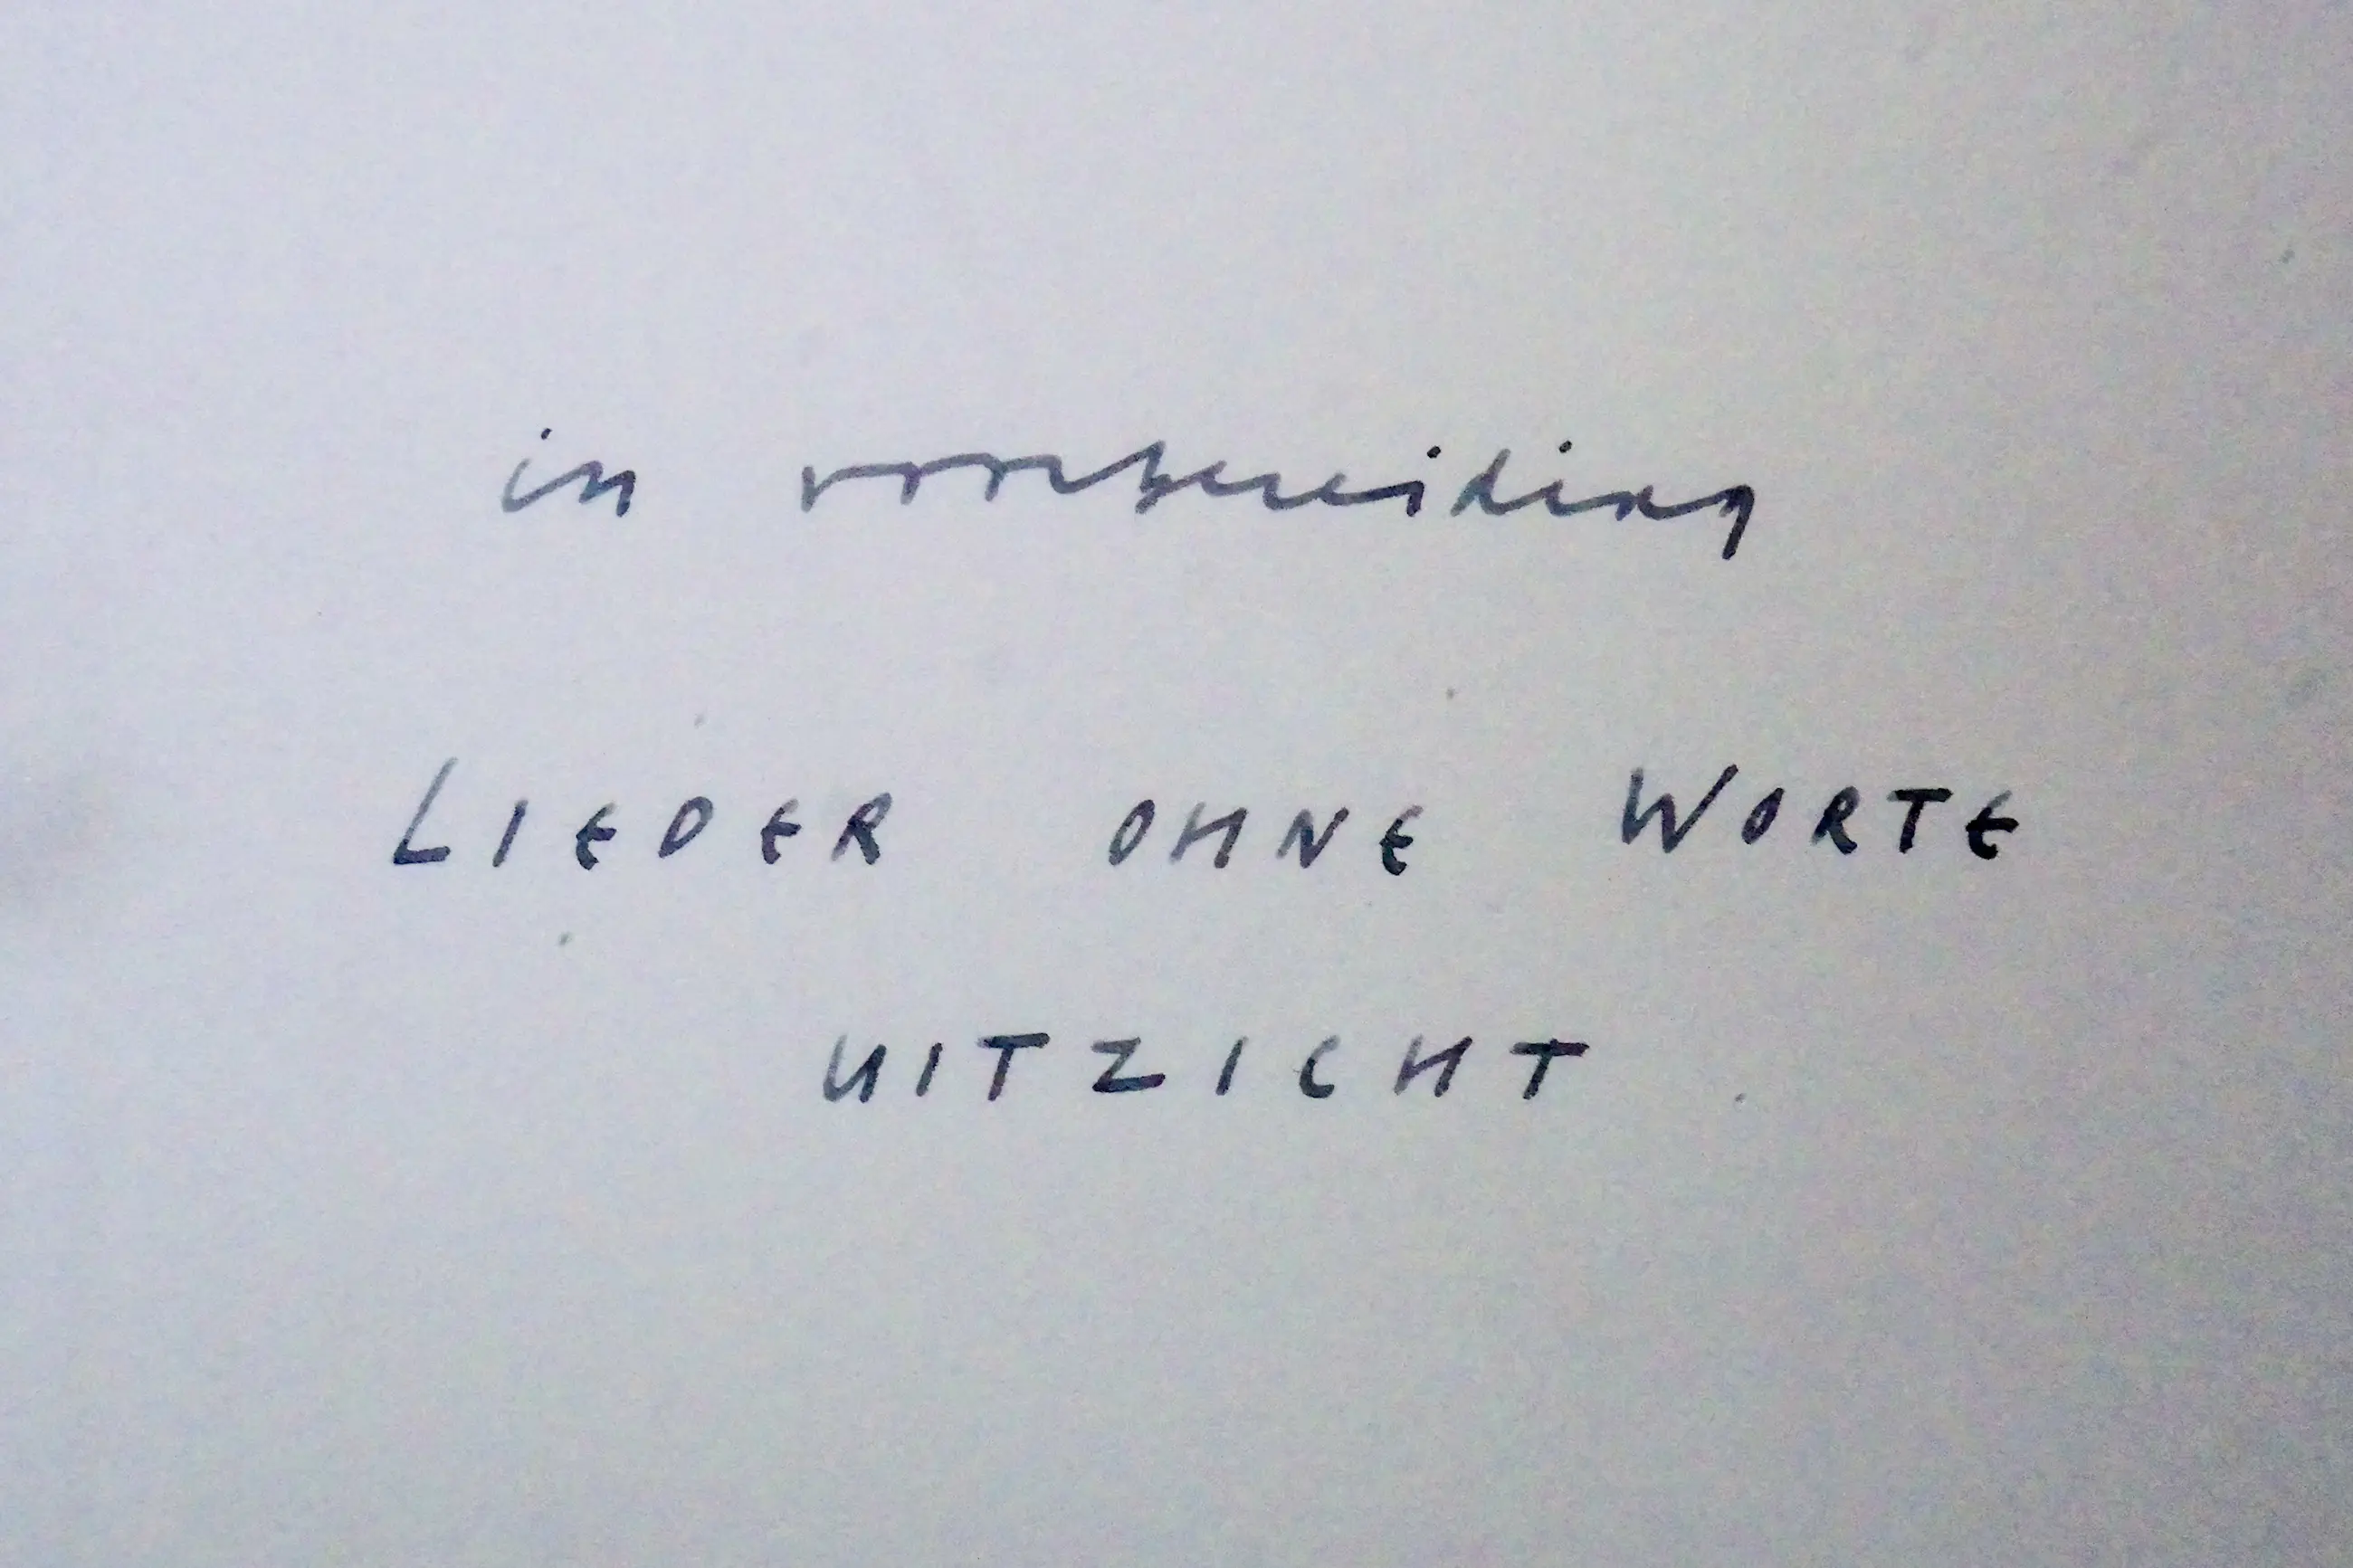 in voorbereiding
LIEDER OHNE WORTE
UITZICHT